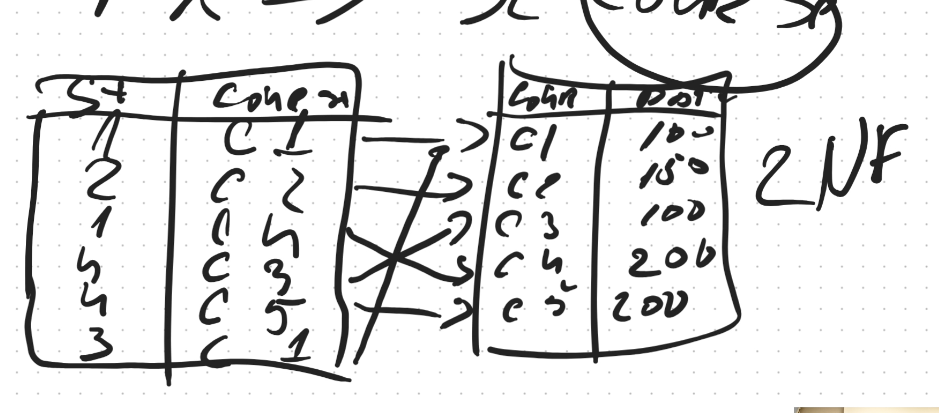 St Course
1 C1
2 C2
1 C4
4 C3
4 C5
3 C1
C1 100
C2 150
C3 100
C4 200
C5 200
2NF